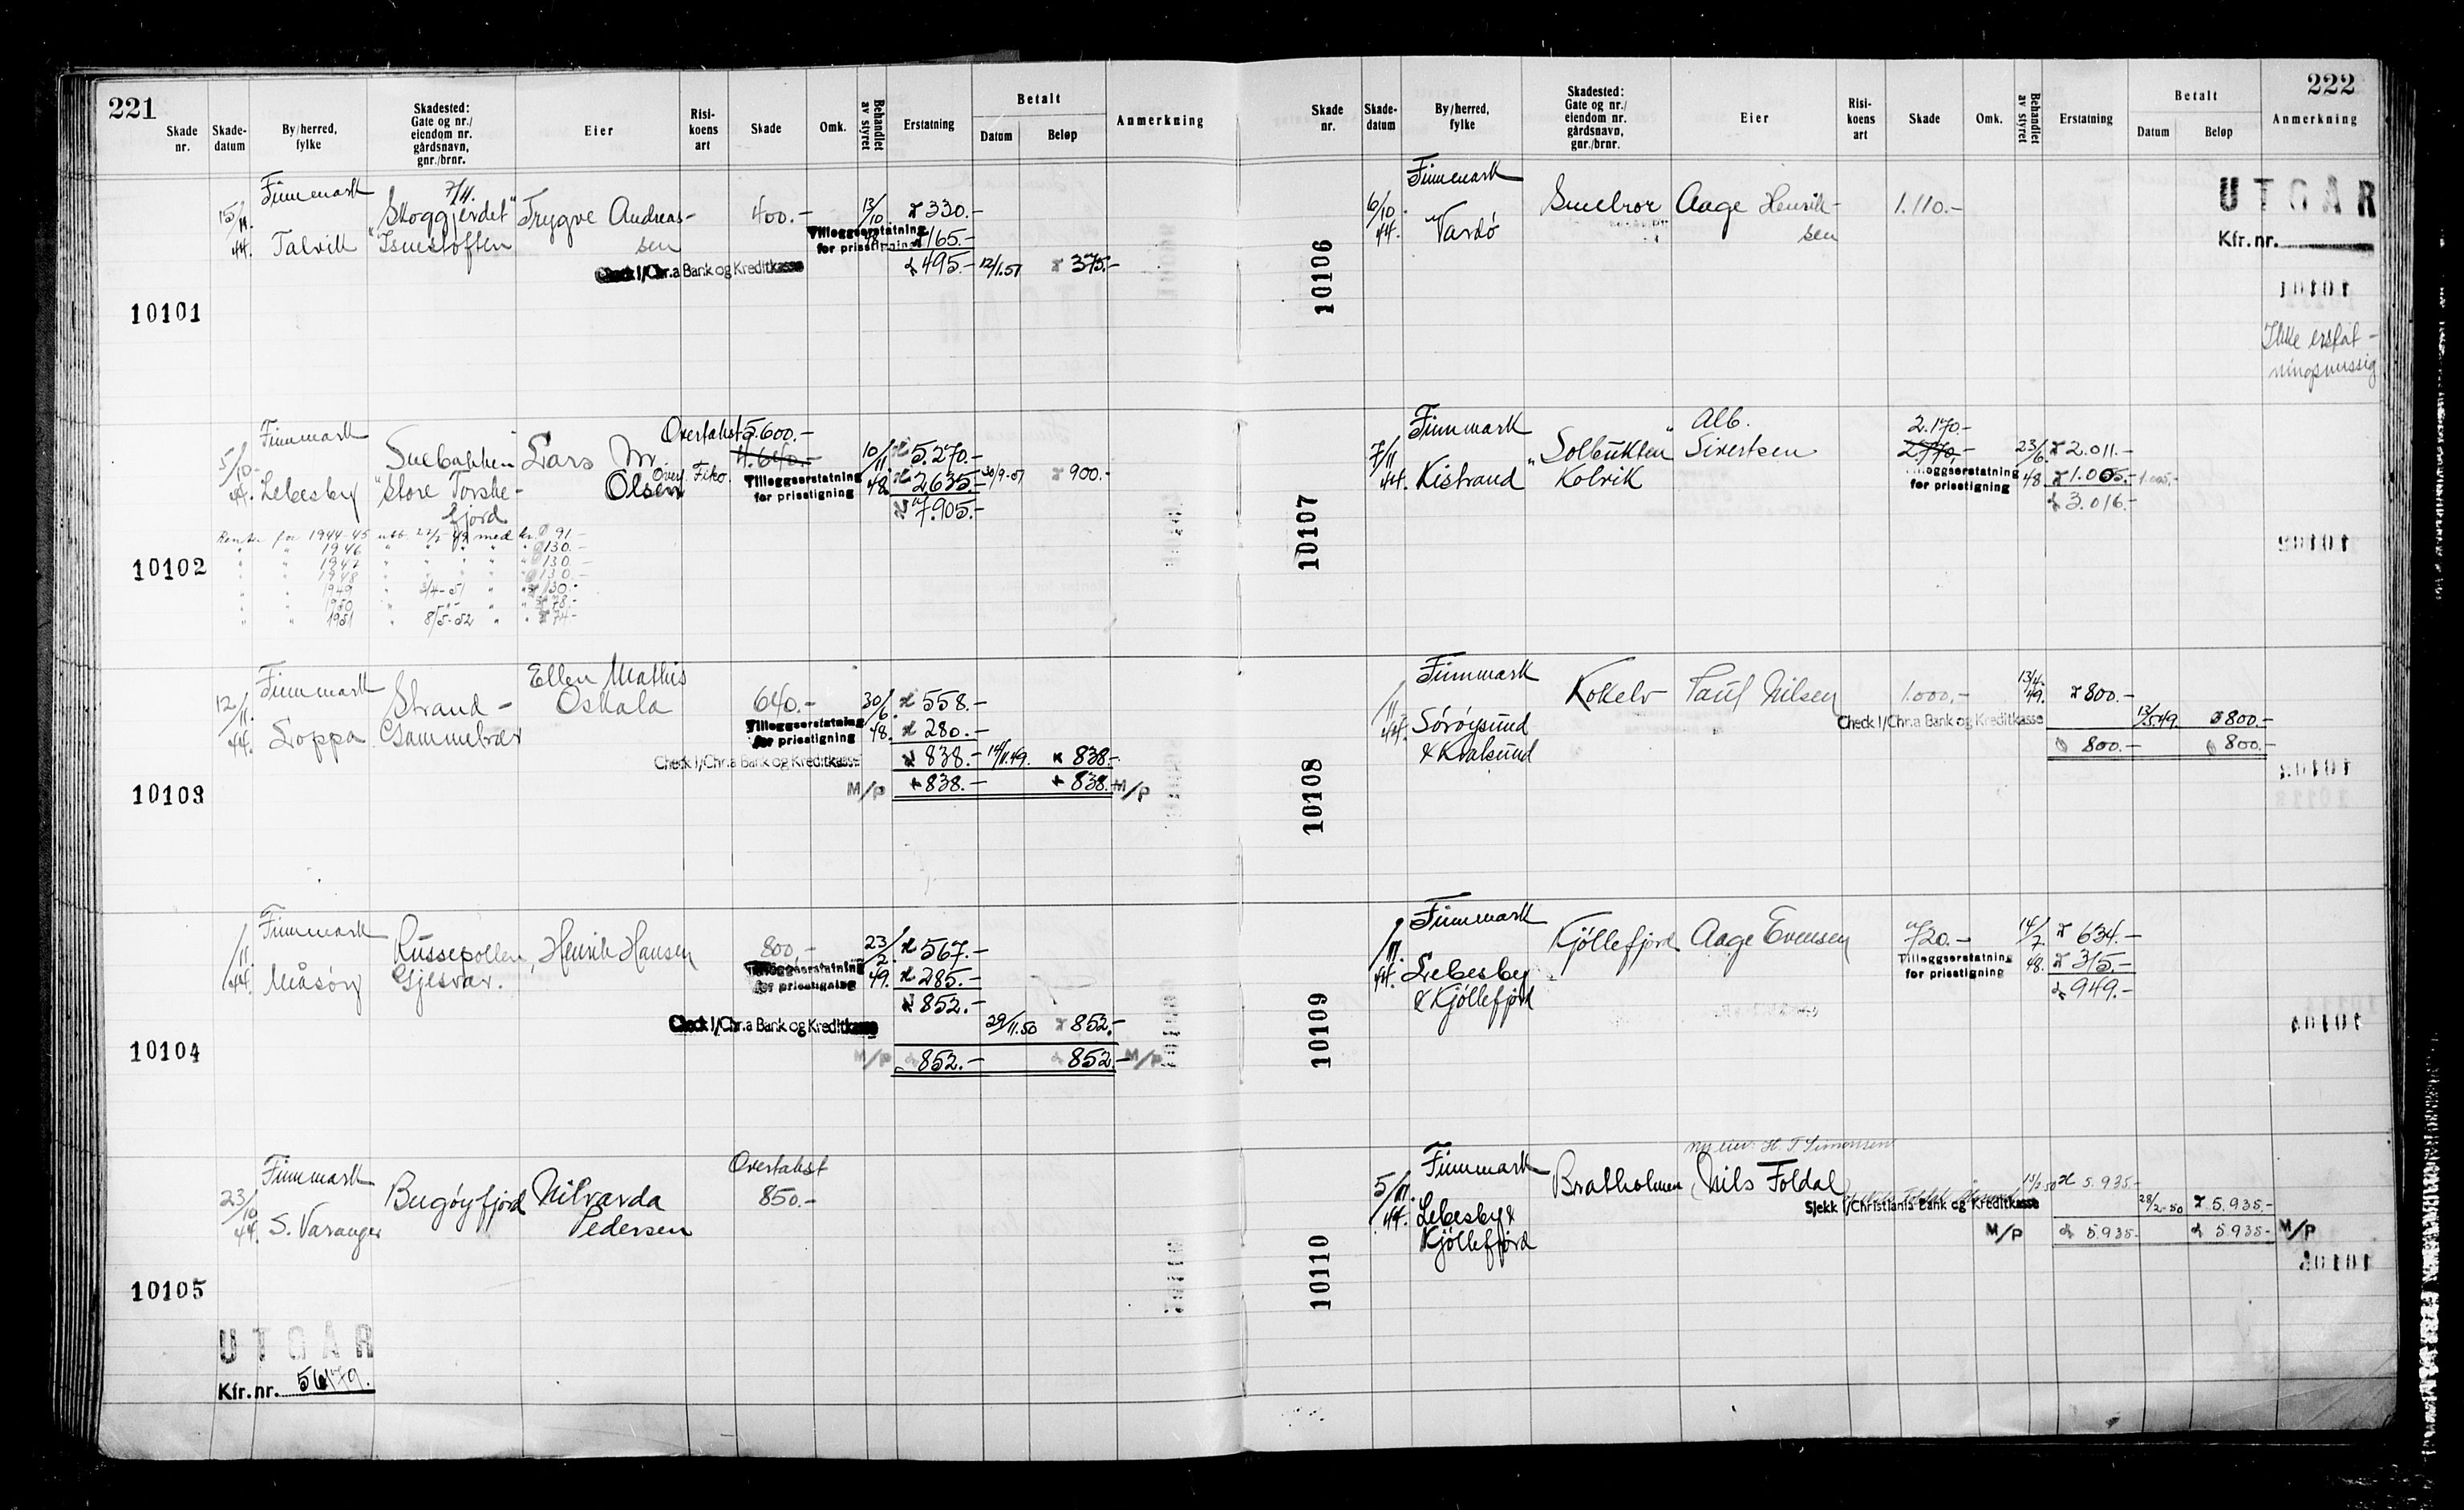 221
Skade nr.
Skade-datum
By/herred, fylke
Skadested: Gate og nr./ eiendom nr. gårdsnavn, gnr./brnr.
Eier
Risi-koens art
Skade
Omk.
Behandlet av styret
Erstatning
Betalt
Datum
Beløp
Anmerkning
10101
15/11. 44.
Finnmark
Talvik
7/11.
"Skoggjerdet"
Trygve Andreas-
sen
400.-
13/10
330.-
Tilleggserstatning
for prisstigning
165.-
495.-
12/1.51
375.-
Check I/Chr.a Bank og Kreditkasse
10102
5/10- 44.
Finnmark
Lebesby
"Store Torske-
fjord
Lars M.
Olsen
Fiko.
Overtakst 5.600.-
4.640.-
Tilleggserstatning
for prisstigning
10/11 48.
5.270.-
2.635.-
7.905.-
30/9-51
900.-
Renter for 1944-45 utb. 22/5-49 med kr. 91-
" " 1946 " " " " 130.-
" " 1947 " " " " 130.-
" " 1948 " " " " 130.-
" " 1949 " 3/4-51 " " 130.-
" " 1950 " " " " 78.-
" " 1951 " 8/5-52 " " 74-
10103
12/11. 44.
Finnmark
Loppa
Strand-
Gammelvær
Ellen Mathis
Oskala
640.-
Tilleggserstatning
for prisstigning
30/6. 48.
558.-
280.-
838.-
14/11.49.
838.-
Check I/Chr.a Bank og Kreditkasse
M/P
838.-
838.-
M/P
10104
/11. 44.
Finnmark
Måsøy
Russepollen,
Gjesvær.
Henrik Hansen
800,-
Tilleggserstatning
for prisstigning
23/2. 49.
567.-
285.-
852.-
29/11.50
852.-
Check I/Chr.a Bank og Kreditkasse
M/P
852.-
852.-
M/P
10105
23/10 44.
Finnmark
S. Varanger
Bugøyfjord
Nilvarda
Pedersen
Overtakst
850.-
UTGÅR
Kfr. nr.
222
Skade nr.
Skade-datum
By/herred, fylke
Skadested: Gate og nr./ eiendom nr. gårdsnavn, gnr./brnr.
Eier
Risi-koens art
Skade
Omk.
Behandlet av styret
Erstatning
Betalt
Datum
Beløp
Anmerkning
10106
6/10. 44.
Finnmark
Vardø
Aage Henrik-
sen
1.110.-
UTGÅR
Kfr. nr.
Ikke erstat-
ningsmessig
10107
7/11 44.
Finnmark
Kistrand
"Solbukten"
Kolvik
Alb.
Sivertsen
2.170-
Tilleggserstatning
for prisstigning
23/6 48
2.011.-
1.005.-
1.005.-
3.016.-
10108
/11 44.
Finnmark
Sørøysund
& Kvalsund
Kokelv
Paul Nilsen
1.000.-
13/4. 49.
800.-
Check I/Chr.a Bank og Kreditkasse
13/5 49.
800.-
800.-
800.-
10109
/11. 44.
Finnmark
Lebesby
& Kjøllefjord
Kjøllefjord
Aage Evensen
720.-
Tilleggserstatning
for prisstigning
14/7. 48.
634.-
315.-
949.-
10110
5/11. 44.
Finnmark
Lebesby &
Kjøllefjord
Bratholmen,
H. T. Simonsen
Nils Foldal
Sjekk I/Christiania Bank og Kreditkasse
5.935-
28/2-50
5.935.-
M/P
5.935-
5.935-
M/P